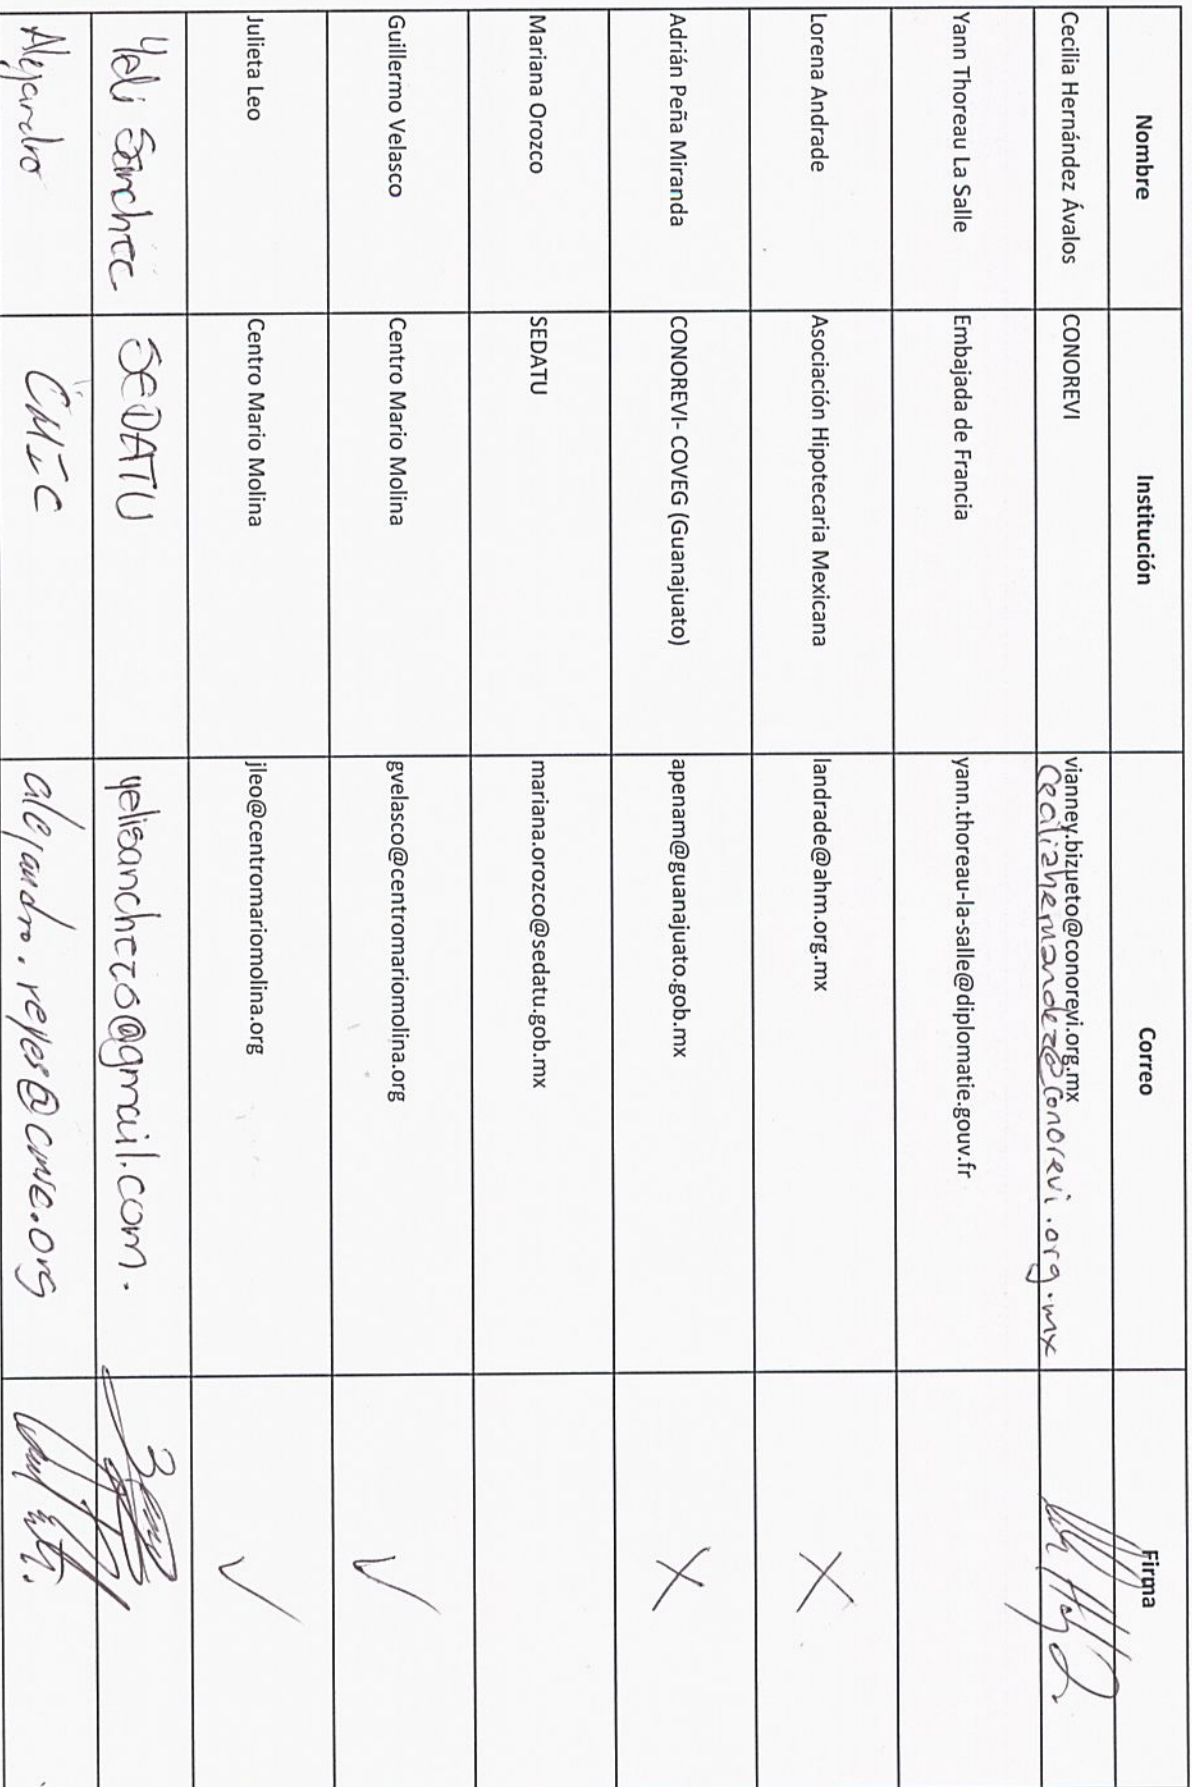 Nombre Institución Correo Firma
Cecilia Hernández Ávalos CONOREVI vianney.bizueto@conorevi.org.mx
ceciliahernandez@conorevi.org.mx
Yann Thoreau La Salle Embajada de Francia yann.thoreau-la-salle@diplomatie.gouv.fr
Lorena Andrade Asociación Hipotecaria Mexicana landrade@ahm.org.mx X
Adrián Peña Miranda CONOREVI- COVEG (Guanajuato) apenam@guanajuato.gob.mx X
Mariana Orozco SEDATU mariana.orozco@sedatu.gob.mx
Guillermo Velasco Centro Mario Molina gvelasco@centromariomolina.org ✓
Julieta Leo Centro Mario Molina jleo@centromariomolina.org ✓
Yeli Sanchez SEDATU yelisanchezo@gmail.com.
Alejandro CMIC alejandro.reyes@cmic.org